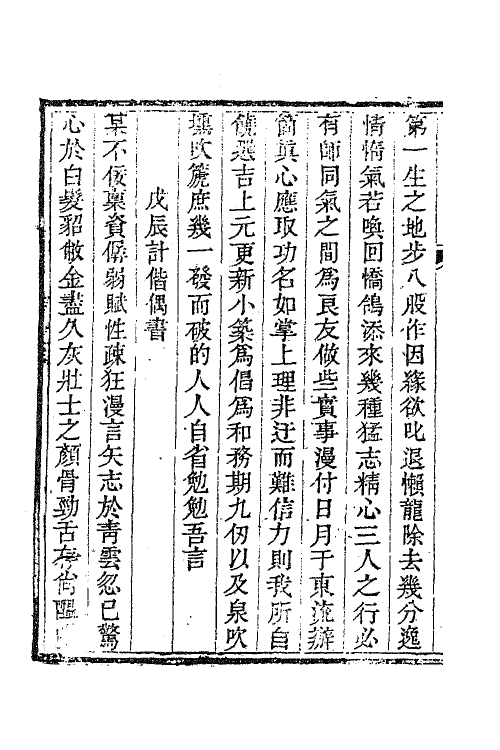 第一生之地步八股作因緣欲叱退懶龍除去幾分逸
情惰氣若喚回憍鴿添來幾種猛志精心三人之行必
有師同氣之間為良友做些實事漫付日月于東流辦
箇真心應取功名如掌上理非迂而難信力則我所自
饒選吉上元更新小築為倡為和務期九仞以及泉吹
壎吹篪庶幾一發而破的人人自省勉勉吾言
戊辰計偕偶書
某不佞稟資僝弱賦性疎狂漫言矢志於青雲忽已驚
心於白髮貂敝金盡久灰壯士之顏骨勁舌存尚